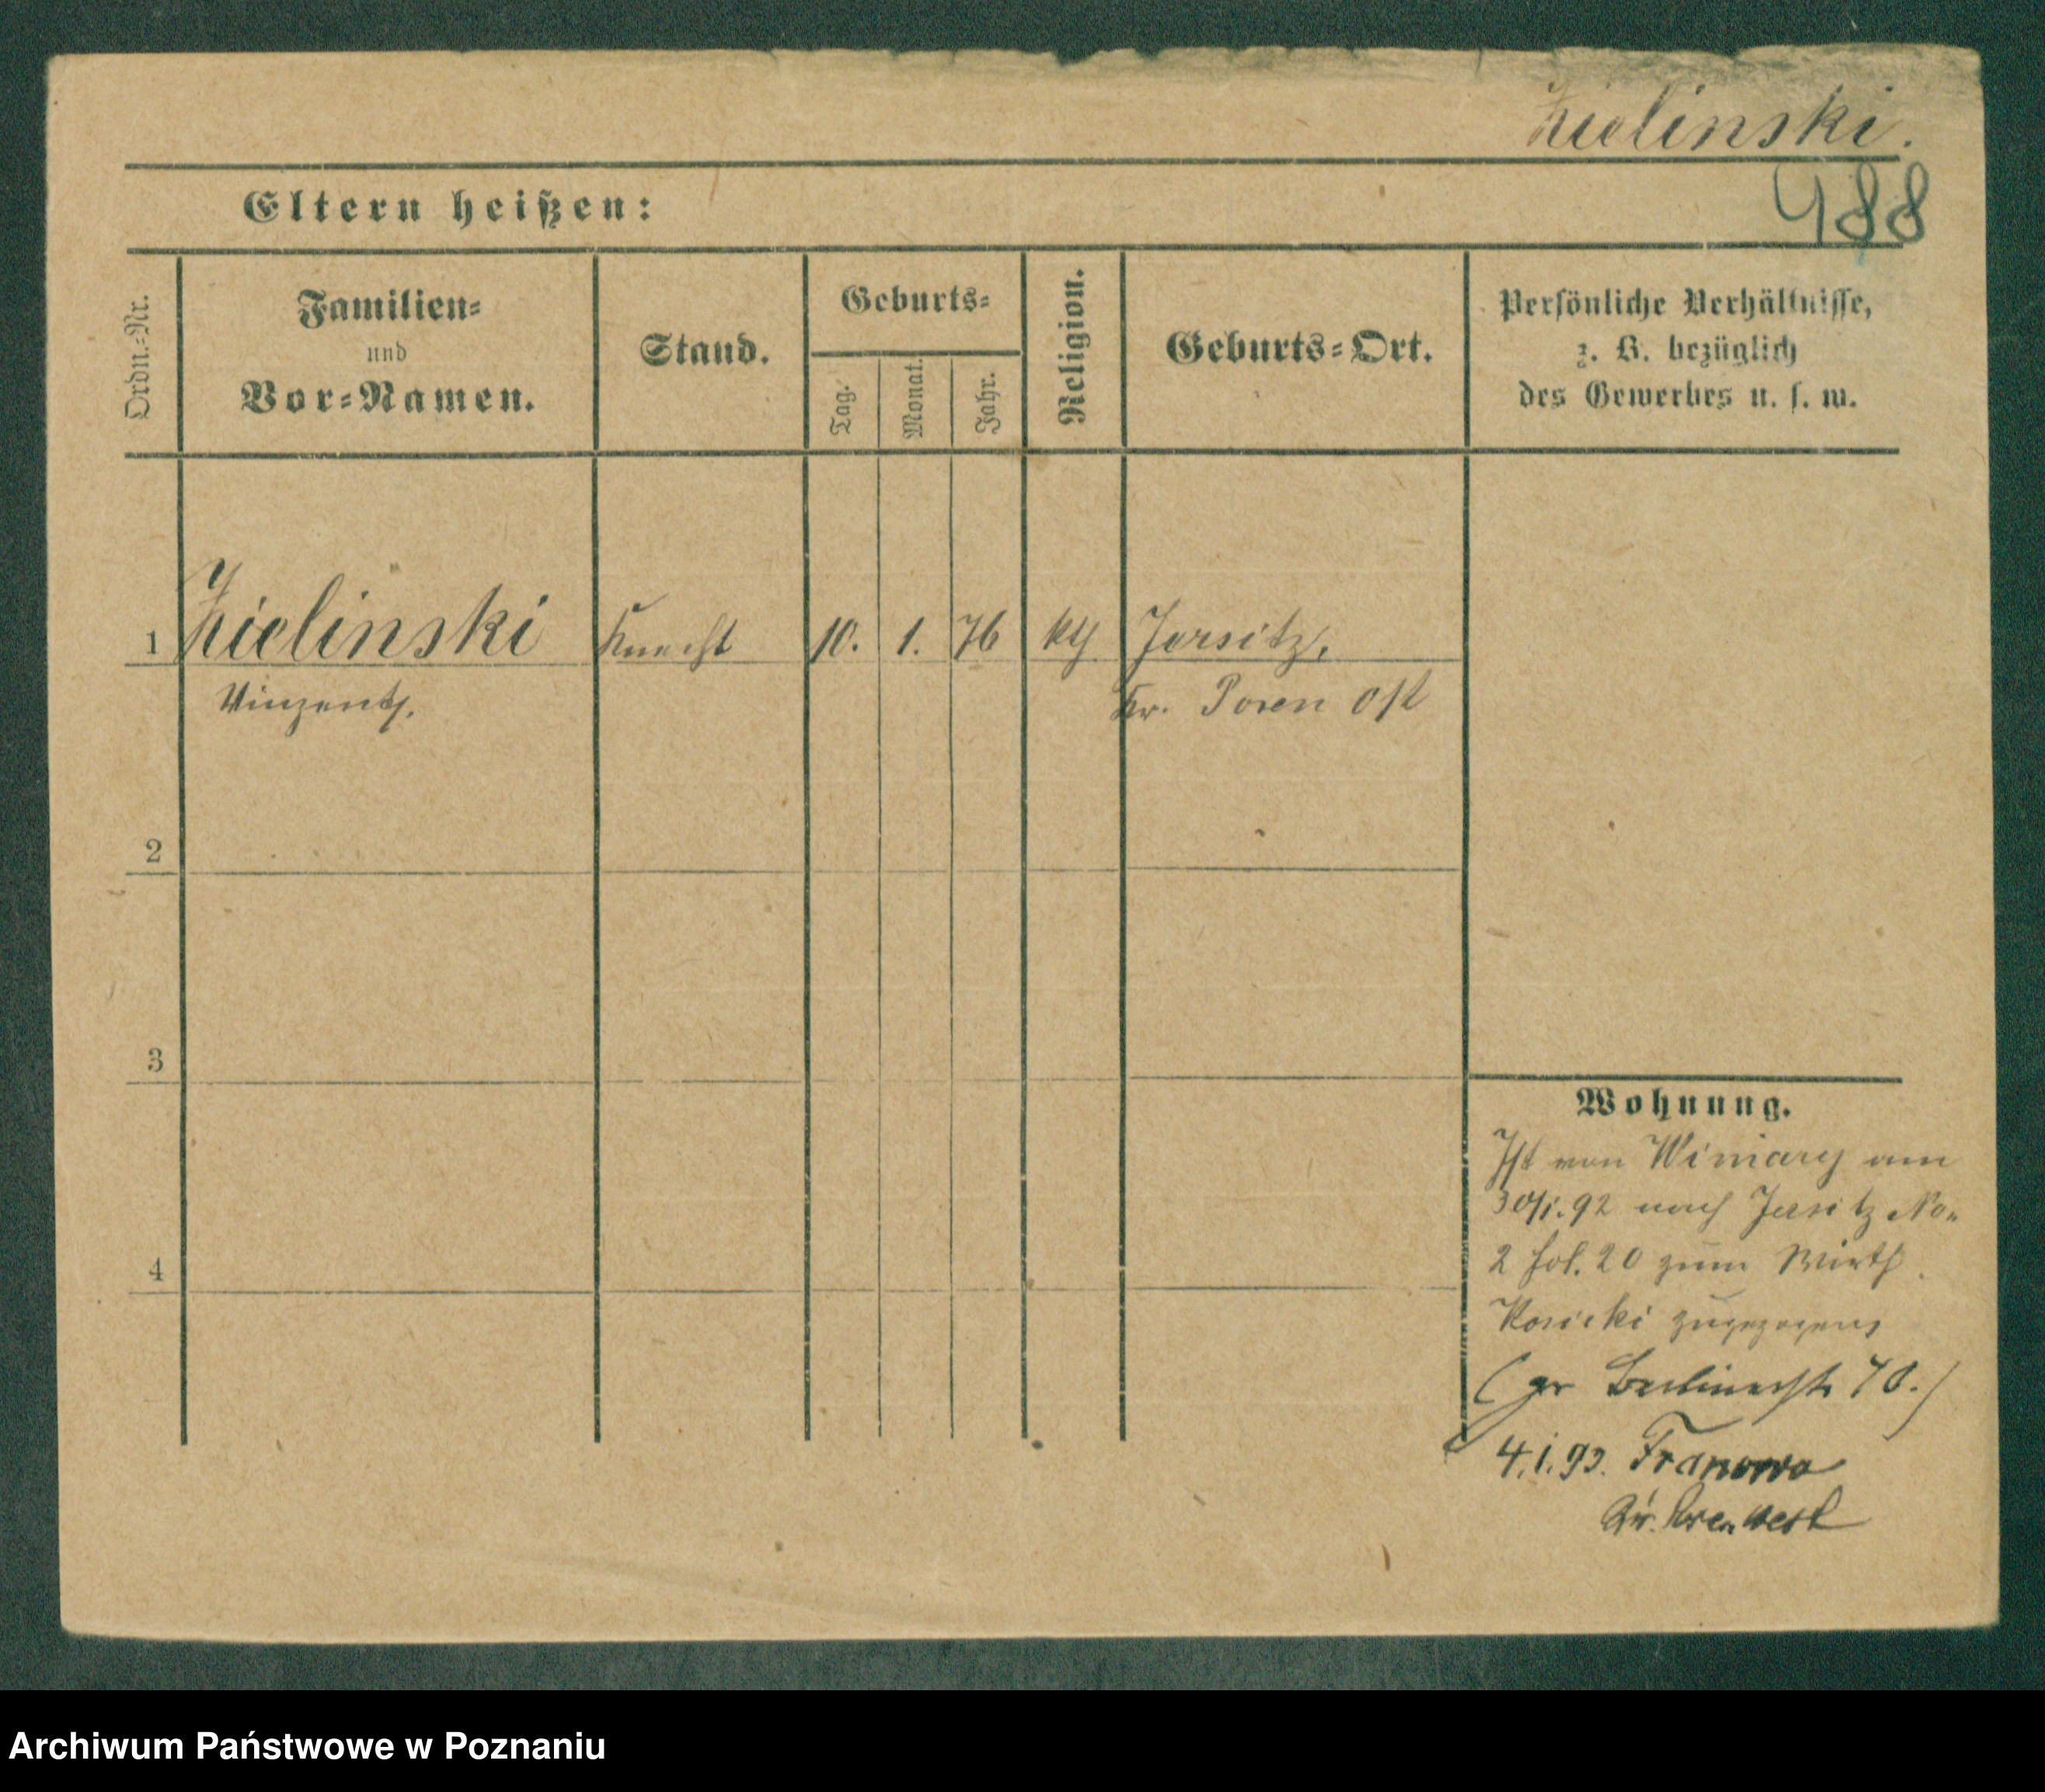 Zielinski.
988
Eltern heißen:
Ordn.-Nr.
Familien-
und
Vor-Namen.
Stand.
Geburts-
Tag.
Monat.
Jahr.
Religion.
Geburts-Ort.
Persönliche Verhältnisse,
z. B. bezüglich
des Gewerbes u. s. w.
1 Zielinski Knecht 10. 1. 76 kth Jersitz,
Vinzent, Kr. Posen Ost
2
3
4
Wohnung.
Ist von Winiary am
30/1.92 nach Jersitz No.
2 fol. 20 zum Wirth
Kosicki zugezogen
(gr Berlinerstr 70.)
4.1.93. Franowo
Kr. Posen West
Archiwum Państwowe w Poznaniu